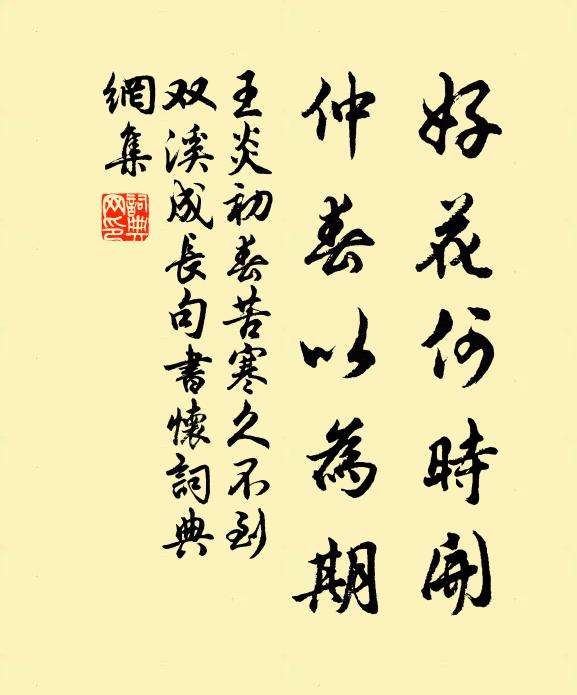 好花何時開
仲春以為期
王炎初春苦寒久不到
双溪成長句書懷詞典
網集
詞典網印